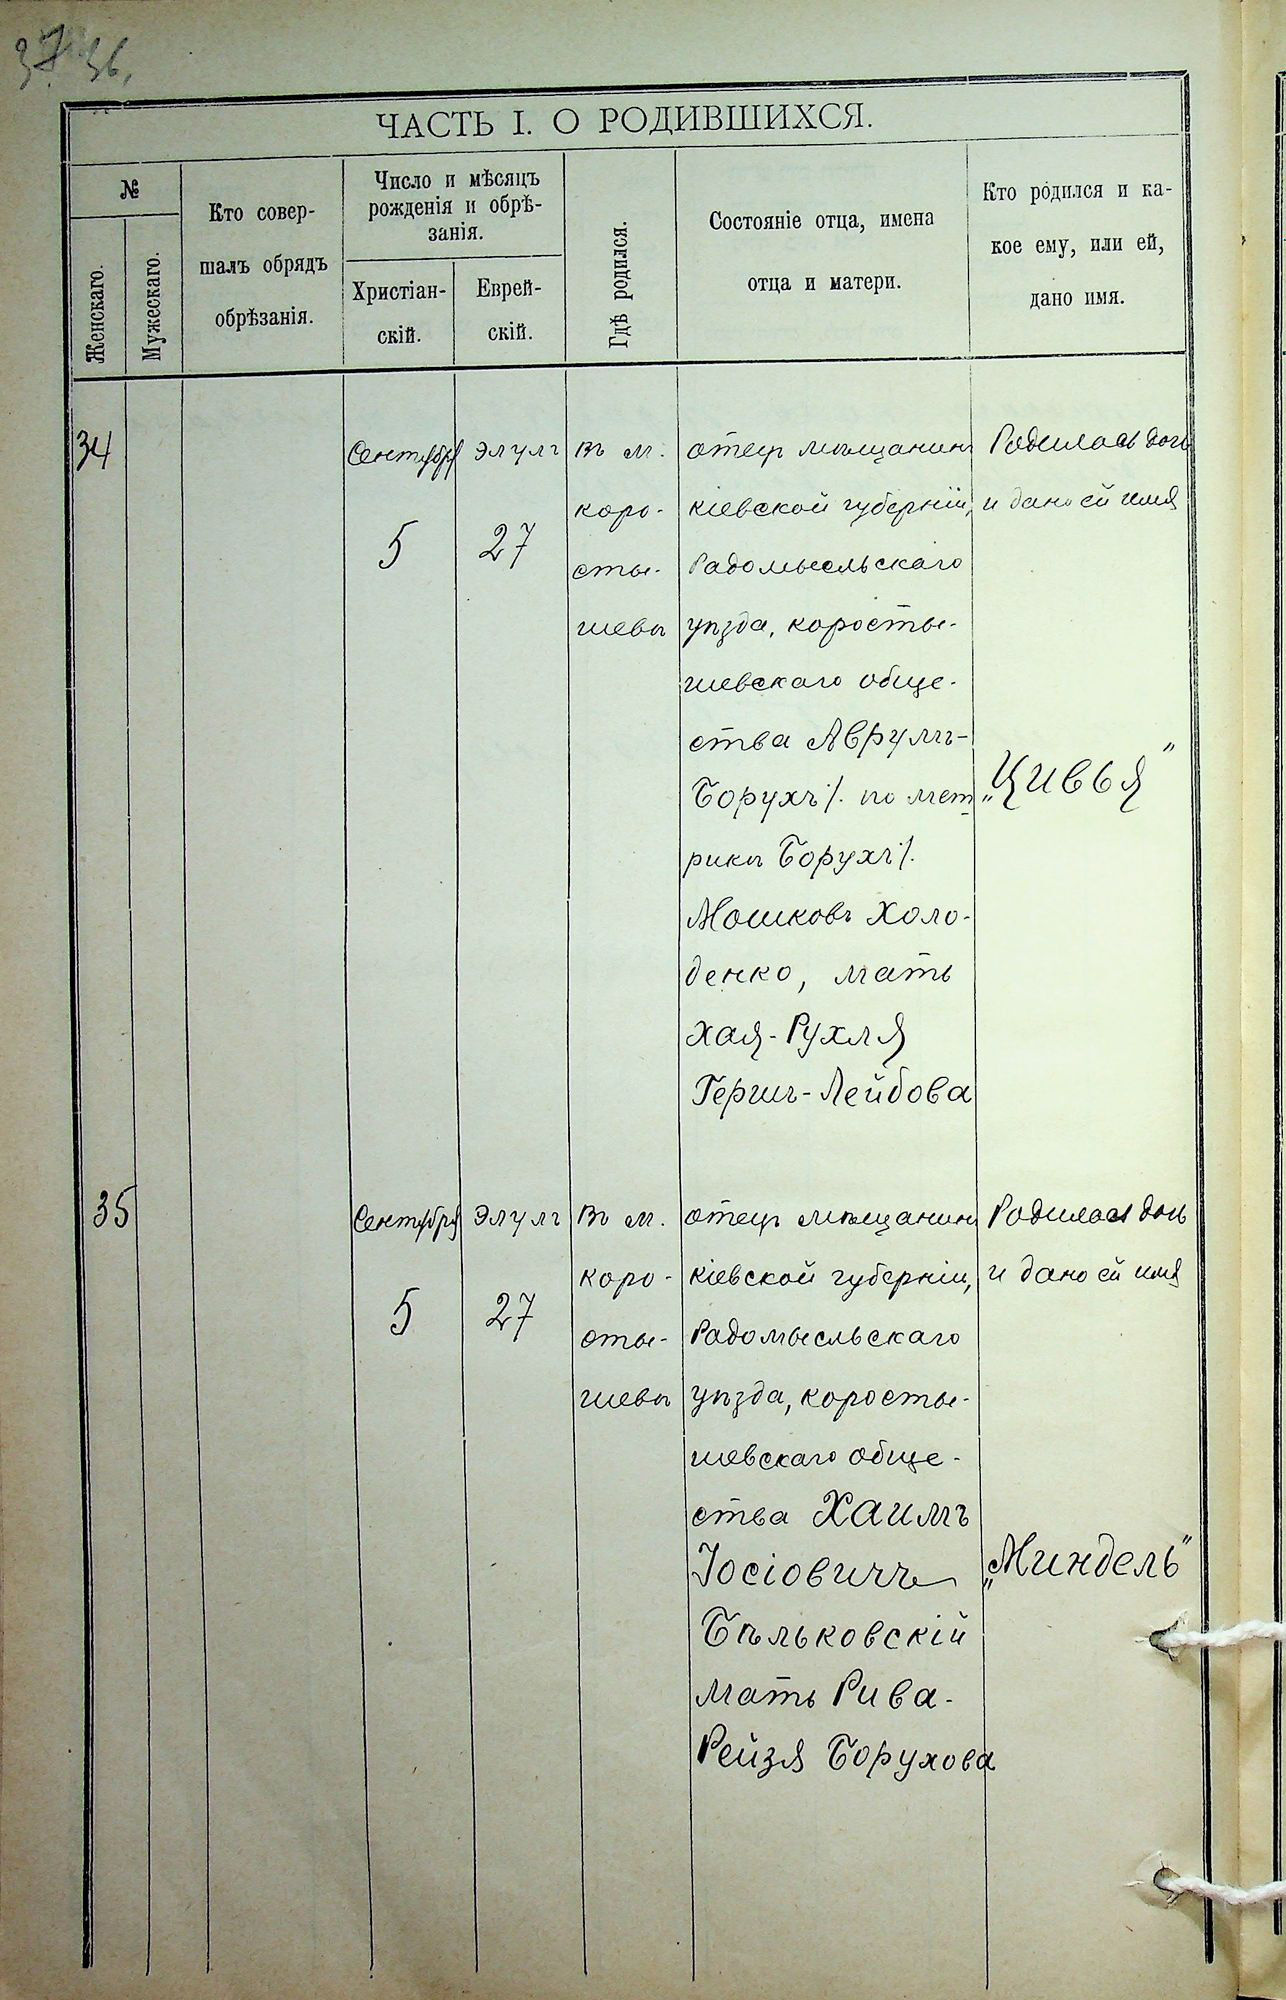 37. 36.
ЧАСТЬ I. О РОДИВШИХСЯ.
№
Женскаго.
Мужескаго.
Кто совер-
шалъ обрядъ
обрѣзанія.
Число и мѣсяцъ
рожденія и обрѣ-
занія.
Христіан-
скій.
Еврей-
скій.
Гдѣ родился.
Состояніе отца, имена
отца и матери.
Кто родился и ка-
кое ему, или ей,
дано имя.
34
Сентября
5
Элулъ
27
Въ м.
Коро-
сты-
шевѣ
отецъ мѣщанинъ
кіевской губерніи,
Радомысльскаго
уѣзда, коросты-
шевскаго обще-
ства Аврумъ-
Борухъ /. по мет
рикѣ Борухъ /.
Мошковъ Холо-
денко, мать
Хая-Рухля
Герш-Лейбова
Родилась дочь
и дано ей имя
„Цивья"
35
Сентября
5
Элулъ
27
Въ м.
Коро-
сты-
шевѣ
отецъ мѣщанинъ
кіевской губерніи,
Радомысльскаго
уѣзда, коросты-
шевскаго обще-
ства Хаимъ
Іосіовичъ
Бѣльковскій
мать Рива-
Рейзя Борухова
Родилась дочь
и дано ей имя
„Миндель"